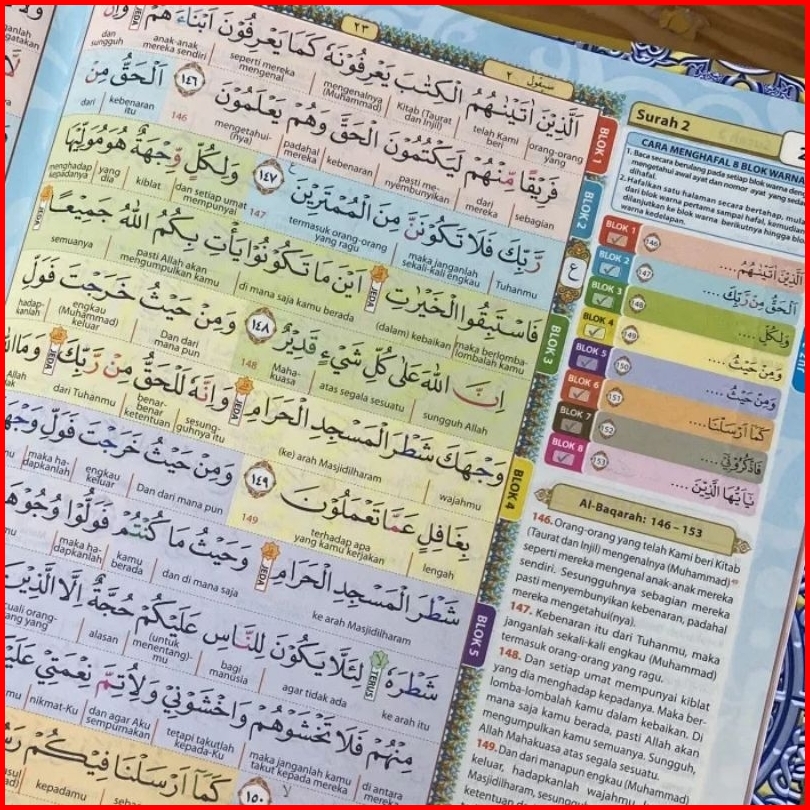 ٢٣
سَيَقُولُ ٢
اَلَّذِيْنَ اٰتَيْنٰهُمُ الْكِتٰبَ يَعْرِفُوْنَهٗ كَمَا يَعْرِفُوْنَ اَبْنَاۤءَهُمْ ۗ وَاِنَّ
orang-orang yang
telah Kami beri
Kitab (Taurat dan Injil)
mengenalnya (Muhammad)
seperti mereka mengenal
anak-anak mereka sendiri
JEDA
dan sungguh
فَرِيْقًا مِّنْهُمْ لَيَكْتُمُوْنَ الْحَقَّ وَهُمْ يَعْلَمُوْنَ ١٤٦ اَلْحَقُّ مِنْ
sebagian
dari mereka
pasti menyembunyikan
kebenaran
padahal mereka
mengetahui-(nya)
146
kebenaran itu
dari
رَّبِّكَ فَلَا تَكُوْنَنَّ مِنَ الْمُمْتَرِيْنَ ١٤٧ وَلِكُلٍّ وِّجْهَةٌ هُوَ مُوَلِّيْهَا
Tuhanmu
maka janganlah sekali-kali engkau
termasuk orang-orang yang ragu
147
dan setiap umat mempunyai
kiblat
yang dia
menghadap kepadanya
فَاسْتَبِقُوا الْخَيْرٰتِ JEDA اَيْنَ مَا تَكُوْنُوْا يَأْتِ بِكُمُ اللّٰهُ جَمِيْعًا
maka berlomba-lombalah kamu
(dalam) kebaikan
di mana saja kamu berada
pasti Allah akan mengumpulkan kamu
semuanya
JEDA
اِنَّ اللّٰهَ عَلٰى كُلِّ شَيْءٍ قَدِيْرٌ ١٤٨ وَمِنْ حَيْثُ خَرَجْتَ فَوَلِّ
sungguh Allah
atas segala sesuatu
Maha-kuasa
148
Dan dari mana pun
engkau (Muhammad) keluar
hadap-kanlah
وَجْهَكَ شَطْرَ الْمَسْجِدِ الْحَرَامِ JEDA وَاِنَّهٗ لَلْحَقُّ مِنْ رَّبِّكَ JEDA وَمَا اللّٰهُ
wajahmu
(ke) arah Masjidilharam
sesung-guhnya itu
benar-benar ketentuan
dari Tuhanmu
بِغَافِلٍ عَمَّا تَعْمَلُوْنَ ١٤٩ وَمِنْ حَيْثُ خَرَجْتَ فَوَلِّ
lengah
terhadap apa yang kamu kerjakan
149
Dan dari mana pun
engkau keluar
maka ha-dapkanlah
شَطْرَ الْمَسْجِدِ الْحَرَامِ JEDA وَحَيْثُ مَا كُنْتُمْ فَوَلُّوْا
ke arah Masjidilharam
dan di mana saja
kamu berada
maka ha-dapkanlah
شَطْرَهٗ TERUS لِئَلَّا يَكُوْنَ لِلنَّاسِ عَلَيْكُمْ حُجَّةٌ اِلَّا الَّذِيْنَ
ke arah itu
agar tidak ada
bagi manusia
(untuk menentang)-mu
alasan
مِنْهُمْ فَلَا تَخْشَوْهُمْ وَاخْشَوْنِيْ وَلِاُتِمَّ نِعْمَتِيْ
di antara
maka janganlah kamu takut kepada mereka
tetapi takutlah kepada-Ku
dan agar Aku sempurnakan
nikmat-Ku
١٥٠ كَمَآ اَرْسَلْنَا فِيْكُمْ
kepadamu
BLOK 1
BLOK 2
ع
BLOK 3
BLOK 4
BLOK 5
Surah 2
CARA MENGHAFAL 8 BLOK WARNA
1. Baca secara berulang pada setiap blok warna
mengetahui awal ayat dan nomor ayat yang
dihafal.
2. Hafalkan satu halaman secara bertahap,
dari blok warna pertama sampai hafal,
dilanjutkan ke blok warna berikutnya hingga
warna kedelapan.
BLOK 1 146 اَلَّذِيْنَ اٰتَيْنٰهُمُ ....
BLOK 2 147 اَلْحَقُّ مِنْ رَّبِّكَ ....
BLOK 3 148 وَلِكُلٍّ ....
BLOK 4 149 وَمِنْ حَيْثُ ....
BLOK 5 150 وَمِنْ حَيْثُ ....
BLOK 6 151 كَمَآ اَرْسَلْنَا ....
BLOK 7 152 فَاذْكُرُوْنِيْٓ ....
BLOK 8 153 يٰٓاَيُّهَا الَّذِيْنَ ....
Al-Baqarah: 146 – 153
146. Orang-orang yang telah Kami beri Kitab
(Taurat dan Injil) mengenalnya (Muhammad)
seperti mereka mengenal anak-anak mereka
sendiri. Sesungguhnya sebagian mereka
pasti menyembunyikan kebenaran, padahal
mereka mengetahui(nya).
147. Kebenaran itu dari Tuhanmu, maka
janganlah sekali-kali engkau (Muhammad)
termasuk orang-orang yang ragu.
148. Dan setiap umat mempunyai kiblat
yang dia menghadap kepadanya. Maka ber-
lomba-lombalah kamu dalam kebaikan. Di
mana saja kamu berada, pasti Allah akan
mengumpulkan kamu semuanya. Sungguh,
Allah Mahakuasa atas segala sesuatu.
149. Dan dari manapun engkau (Muhammad)
keluar, hadapkanlah wajahmu
Masjidilharam,